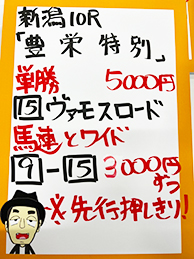 新潟10R
「豊栄特別」
単勝 5000円
15 ヴァモスロード
馬連とワイド
9-15 3000円
ずつ
※先行押しきり!